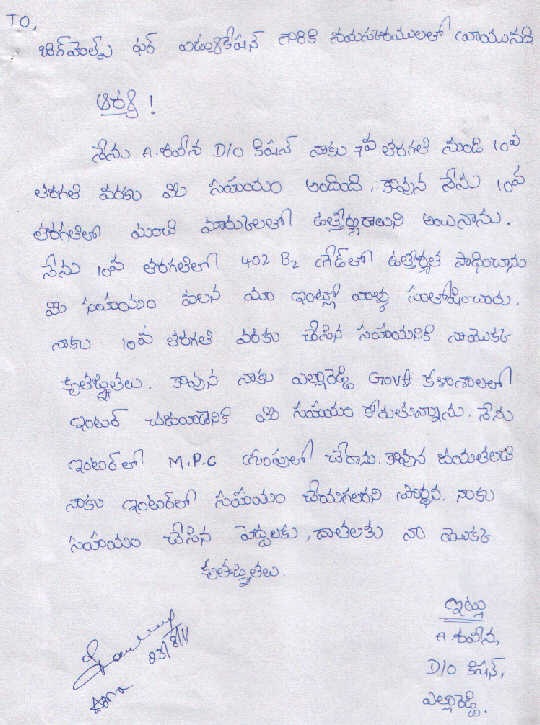 TO,
ఫర్ ఎడ్యుకేషన్ గారికి నమస్కారములతో వ్రాయునది
ఆర్జి !
నేను A. శిరీష D/o కిషన్ నాకు 7వ తరగతి నుండి 10వ
తరగతి వరకు మీ సహాయం అందింది. కావున నేను 10వ
తరగతిలో మంచి మార్కులతో ఉత్తీర్ణురాలుని అయినాను.
నేను 10వ తరగతిలో 402 B2 గ్రేడ్‌లో ఉత్తీర్ణత సాధించాను
మీ సహాయం వలన మా ఇంట్లో వాళ్ళు సంతోషించారు.
నాకు 10వ తరగతి వరకు చేసిన సహాయానికి నా యొక్క
కృతజ్ఞతలు. కావున నాకు ఎల్లారెడ్డి Govt కళాశాలలో
ఇంటర్ చదువడానికి మీ సహాయం కోరుతున్నాను. నేను
ఇంటర్‌లో M.P.C గ్రూపులో చేరాను. కావున దయతలచి
నాకు ఇంటర్‌లో సహాయం చేయగలరని ప్రార్థన. నాకు
సహాయం చేసిన పెద్దలకు, దాతలకు నా యొక్క
కృతజ్ఞతలు.
ఇట్లు
A. శిరీష,
D/o కిషన్,
ఎల్లారెడ్డి.
03/8/11